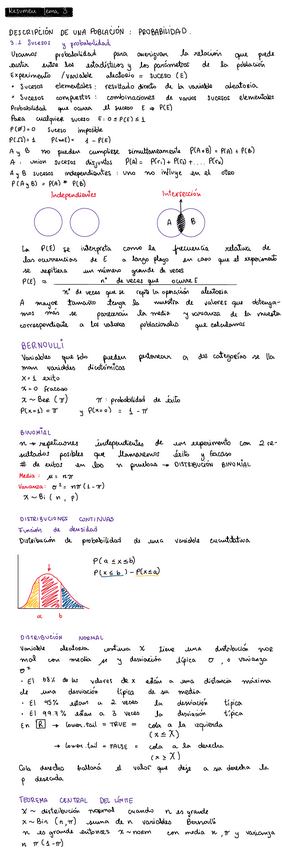 Resumen Tema 3
DESCRIPCIÓN DE UNA POBLACIÓN : PROBABILIDAD.
3.1 Sucesos y probabilidad
Usamos probabilidad para averiguar la relación que puede
existir entre los estadísticos y los parámetros de la población
Experimento / variable aleatorio = SUCESO (E)
• Sucesos elementales: resultado directo de la variable aleatoria
• Sucesos compuestos: combinaciones de varios sucesos elementales
Probabilidad que ocurra el suceso E → P(E)
Para cualquier suceso E: 0 ≤ P(E) ≤ 1
P(Ø)=0 Suceso imposible
P(Ω)=1 P(noE)= 1 - P(E)
A y B no pueden cumplirse simultáneamente P(A+B) = P(A) + P(B)
A : unión sucesos disjuntos P(A) = P(r1) + P(r2) + .... P(rn)
A y B sucesos independientes : uno no influye en el otro
P(A y B) = P(A) * P(B)
Independientes Intersección
A B
La P(E) se interpreta como la frecuencia relativa de
las ocurrencias de E a largo plazo en caso que el experimento
se repitiera un número grande de veces
P(E) = nº de veces que ocurre E
nº de veces que se repite la operación aleatoria
A mayor tamaño tenga la muestra de valores que obtenga-
mos más se parecerán la media y varianza de la muestra
correspondiente a los valores poblacionales que calculamos
BERNOULLI
Variables que solo pueden pertenecer a dos categorías se lla
man variables dicotómicas
X=1 éxito
X=0 fracaso
X ~ Ber (π) π : probabilidad de éxito
P(X=1) = π y P(X=0) = 1 - π
BINOMIAL
n → repeticiones independientes de un experimento con 2 re-
sultados posibles que llamaremos éxito y fracaso
# de éxitos en las n pruebas → DISTRIBUCIÓN BINOMIAL
Media : μ = nπ
Varianza : σ² = nπ (1-π)
X ~ Bi (n, p)
DISTRIBUCIONES CONTINUAS
Función de densidad
Distribución de probabilidad de una variable cuantitativa
P(a ≤ x ≤ b)
P(x ≤ b) - P(x ≤ a)
a b
DISTRIBUCIÓN NORMAL
Variable aleatoria continua X tiene una distribución nor
mal con media μ y desviación típica σ, o varianza
σ²
• El 68% de los valores de X están a una distancia máxima
de una desviación típica de su media
• El 95% están a 2 veces la desviación típica
• El 99.7% están a 3 veces la desviación típica
En R → lower.tail = TRUE = cola a la izquierda
(x ≤ X)
→ lower.tail = FALSE = cola a la derecha
(x ≥ X)
Cola derecha hallará el valor que deje a su derecha la
p deseada
TEOREMA CENTRAL DEL LÍMITE
X ~ distribución normal cuando n es grande
X ~ Bin (n, π) suma de n variables Bernoulli
n es grande entonces X ~ norm con media n, π y varianza
n π (1-π)